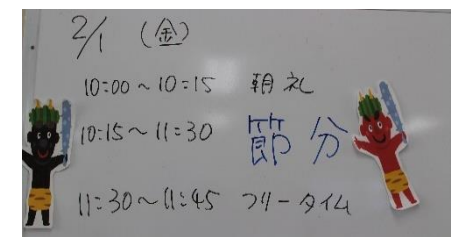 2/1 (金)
10:00~10:15 朝礼
10:15~11:30 節分
11:30~11:45 フリータイム